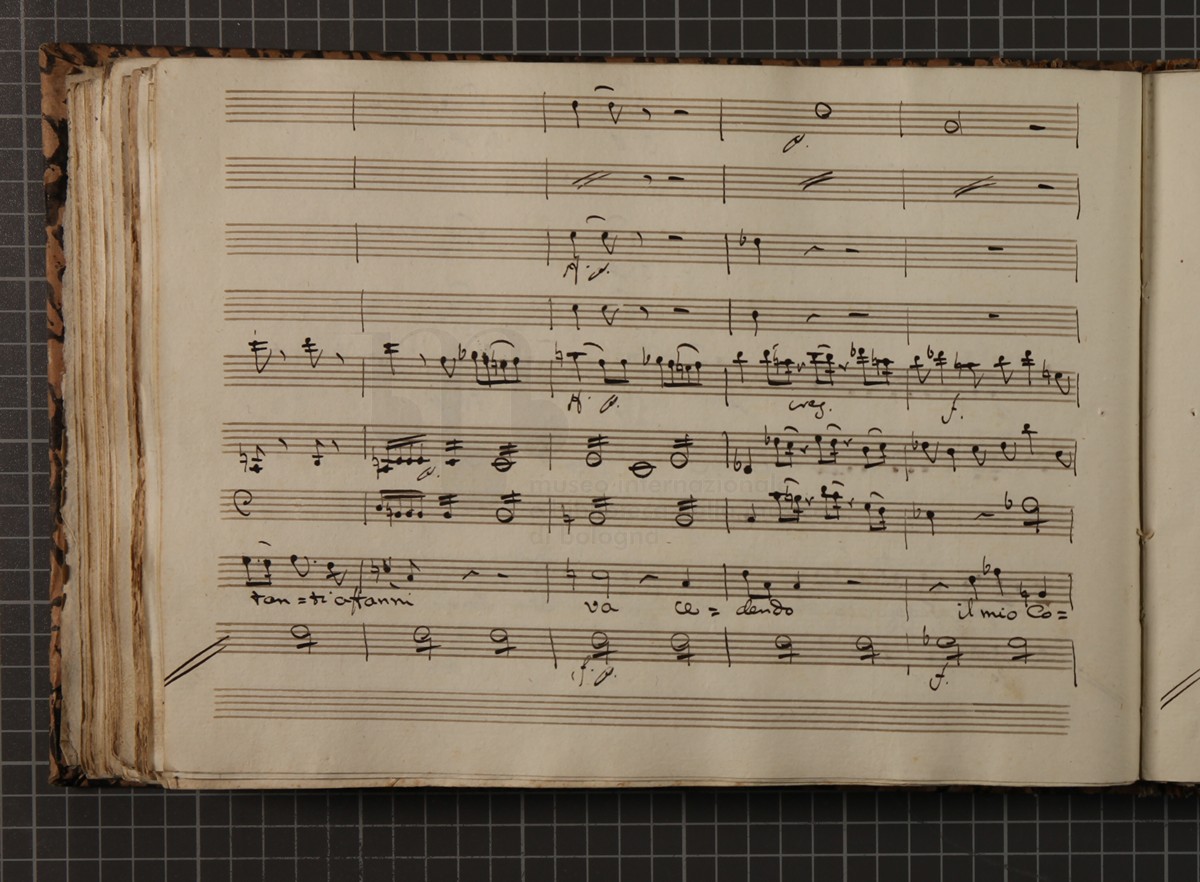 p.
f. p.
f. p.
cres.
f.
p.
museo internazionale
di bologna
tan = ti affanni va ce = dendo il mio Co =
f. p.
f.